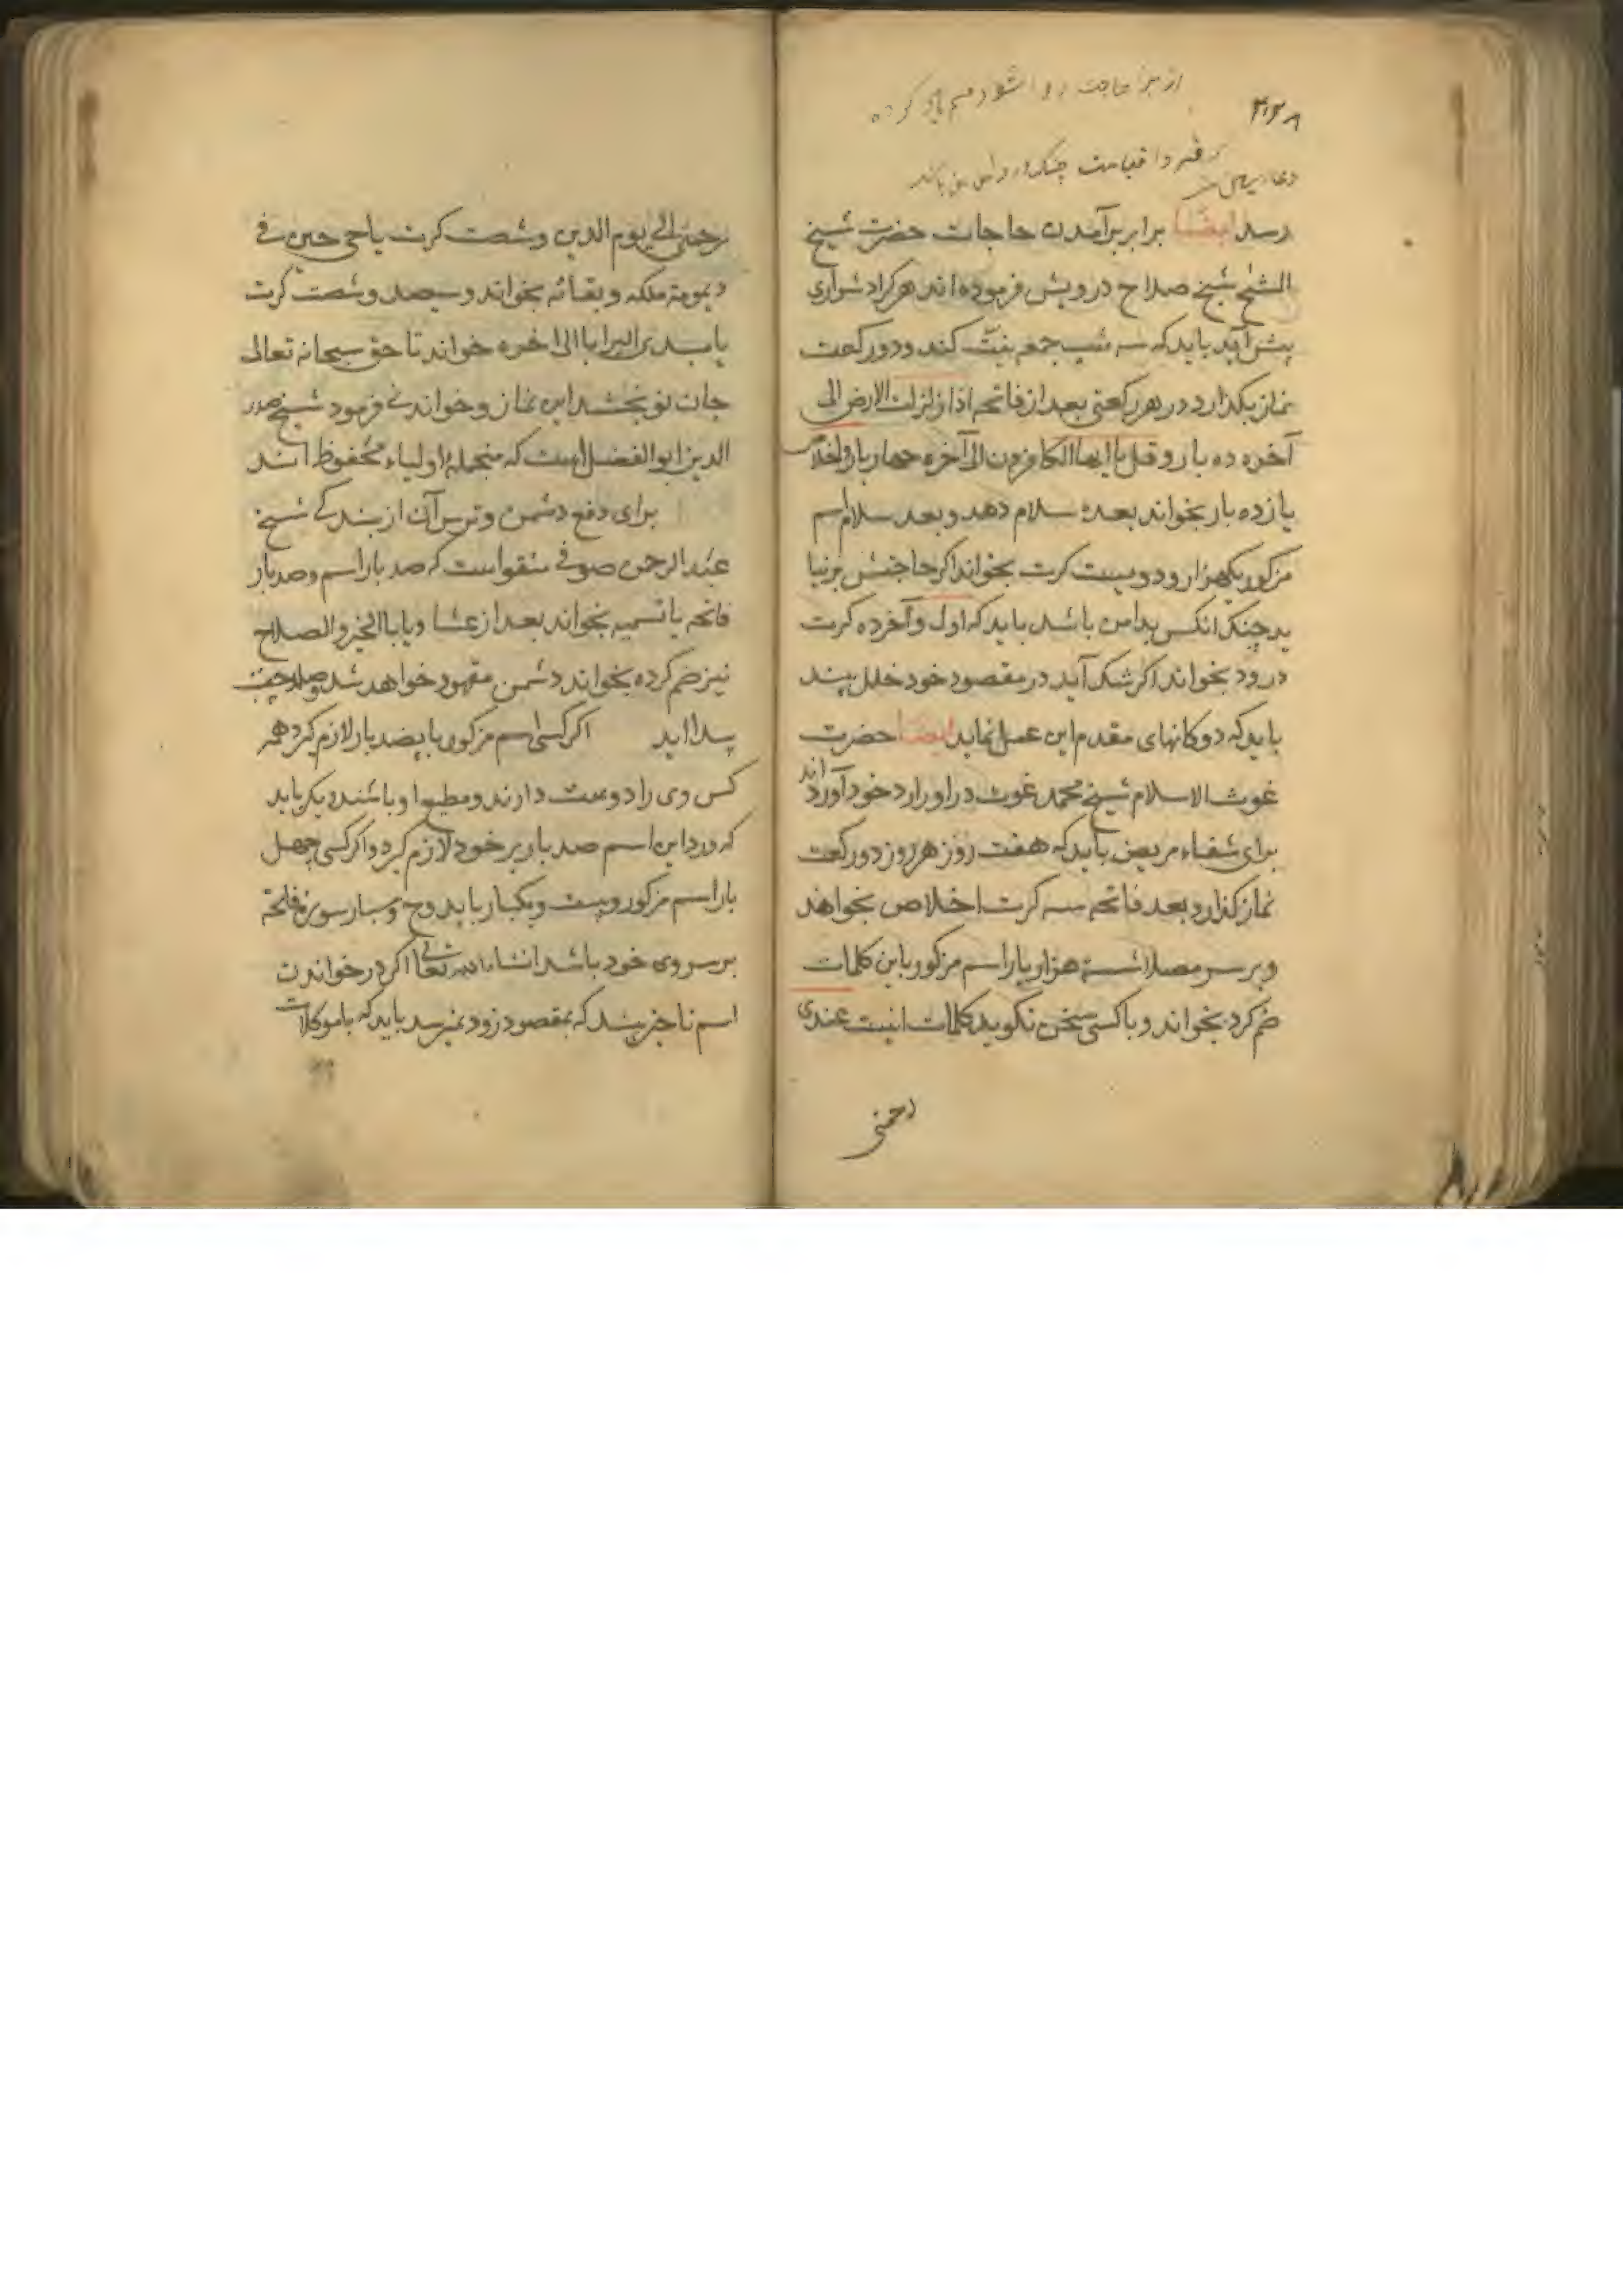 ۴۲۸
از هر حاجت روا شود
فردا قیامت
رسد ایضا برابر برآمدن حاجات حضرت شیخ
الشیخ شیخ صلاح درویش فرموده اند هر کرا دشواری
پیش آید باید که سه شب جمعه نیت کند و دو رکعت
نماز بگذارد در هر رکعتی بعد از فاتحه اذا زلزلت الارض الی
آخره ده بار و قل یا ایها الکافرون الی آخره چهار بار و اخلاص
یازده بار بخواند بعده سلام دهد و بعد سلام اسم
مزکور یکهزار و دویست کرت بخواند اکر حاجتش برنیا
ید چنک انکس بدامن باشد باید که اول و آخر ده کرت
درود بخواند اکر شک آید در مقصود خود خلل بیند
باید که دوکانهای مقدم این عمل نماید ایضا حضرت
غوث الاسلام شیخ محمد غوث در اوراد خود آورده اند
برای شفاء مریض باید که هفت روز هر روز دو رکعت
نماز کذارد بعد فاتحه سه کرت اخلاص بخواهند
و بر سر مصلا نشسته هزار بار اسم مزکور باین کلمات
ضم کرد بخواند و با کسی سخن نکوید کلمات اینست عندی
رحمتی
رحمتی الی یوم الدین و شصت کرت یا حی حین فی
دیمومة ملکه و بقائه بخواند و سیصد و شصت کرت
یا بدیع البرایا الی اخره خواند تا حق سبحانه تعالی
جان نو بخشد این نماز و خواندنی فرمود شیخ صدر
الدین ابوالفضل است که منجمله اولیاء محفوظ اند
برای دفع دشمن و ترس آن از بندکی شیخ
عبد الرحمن صوفی منقواست که صد بار اسم و صد بار
فاتحه با تسمیه بخواند بعد از عشا و یا باالخیر و الصلاح
نیز ضم کرده بخواند دشمن مقهور خواهد شد
پیدا اید اکر کسی اسم مزکور با پنصد بار لازم کیرد همه
کس وی را دوست دارند و مطیع او باشند دیکر باید
که ورد این اسم صد بار بر خود لازم کیرد و اکر کسی چهل
بار اسم مزکور و بیست و یکبار یا بدوح و سبار سوره فاتحه
بر سر وی خود باشد انشاء الله تعالی اکر در خواندن
اسم ناخیر بیند که بمقصود زود نمیرسد باید که با موکلات